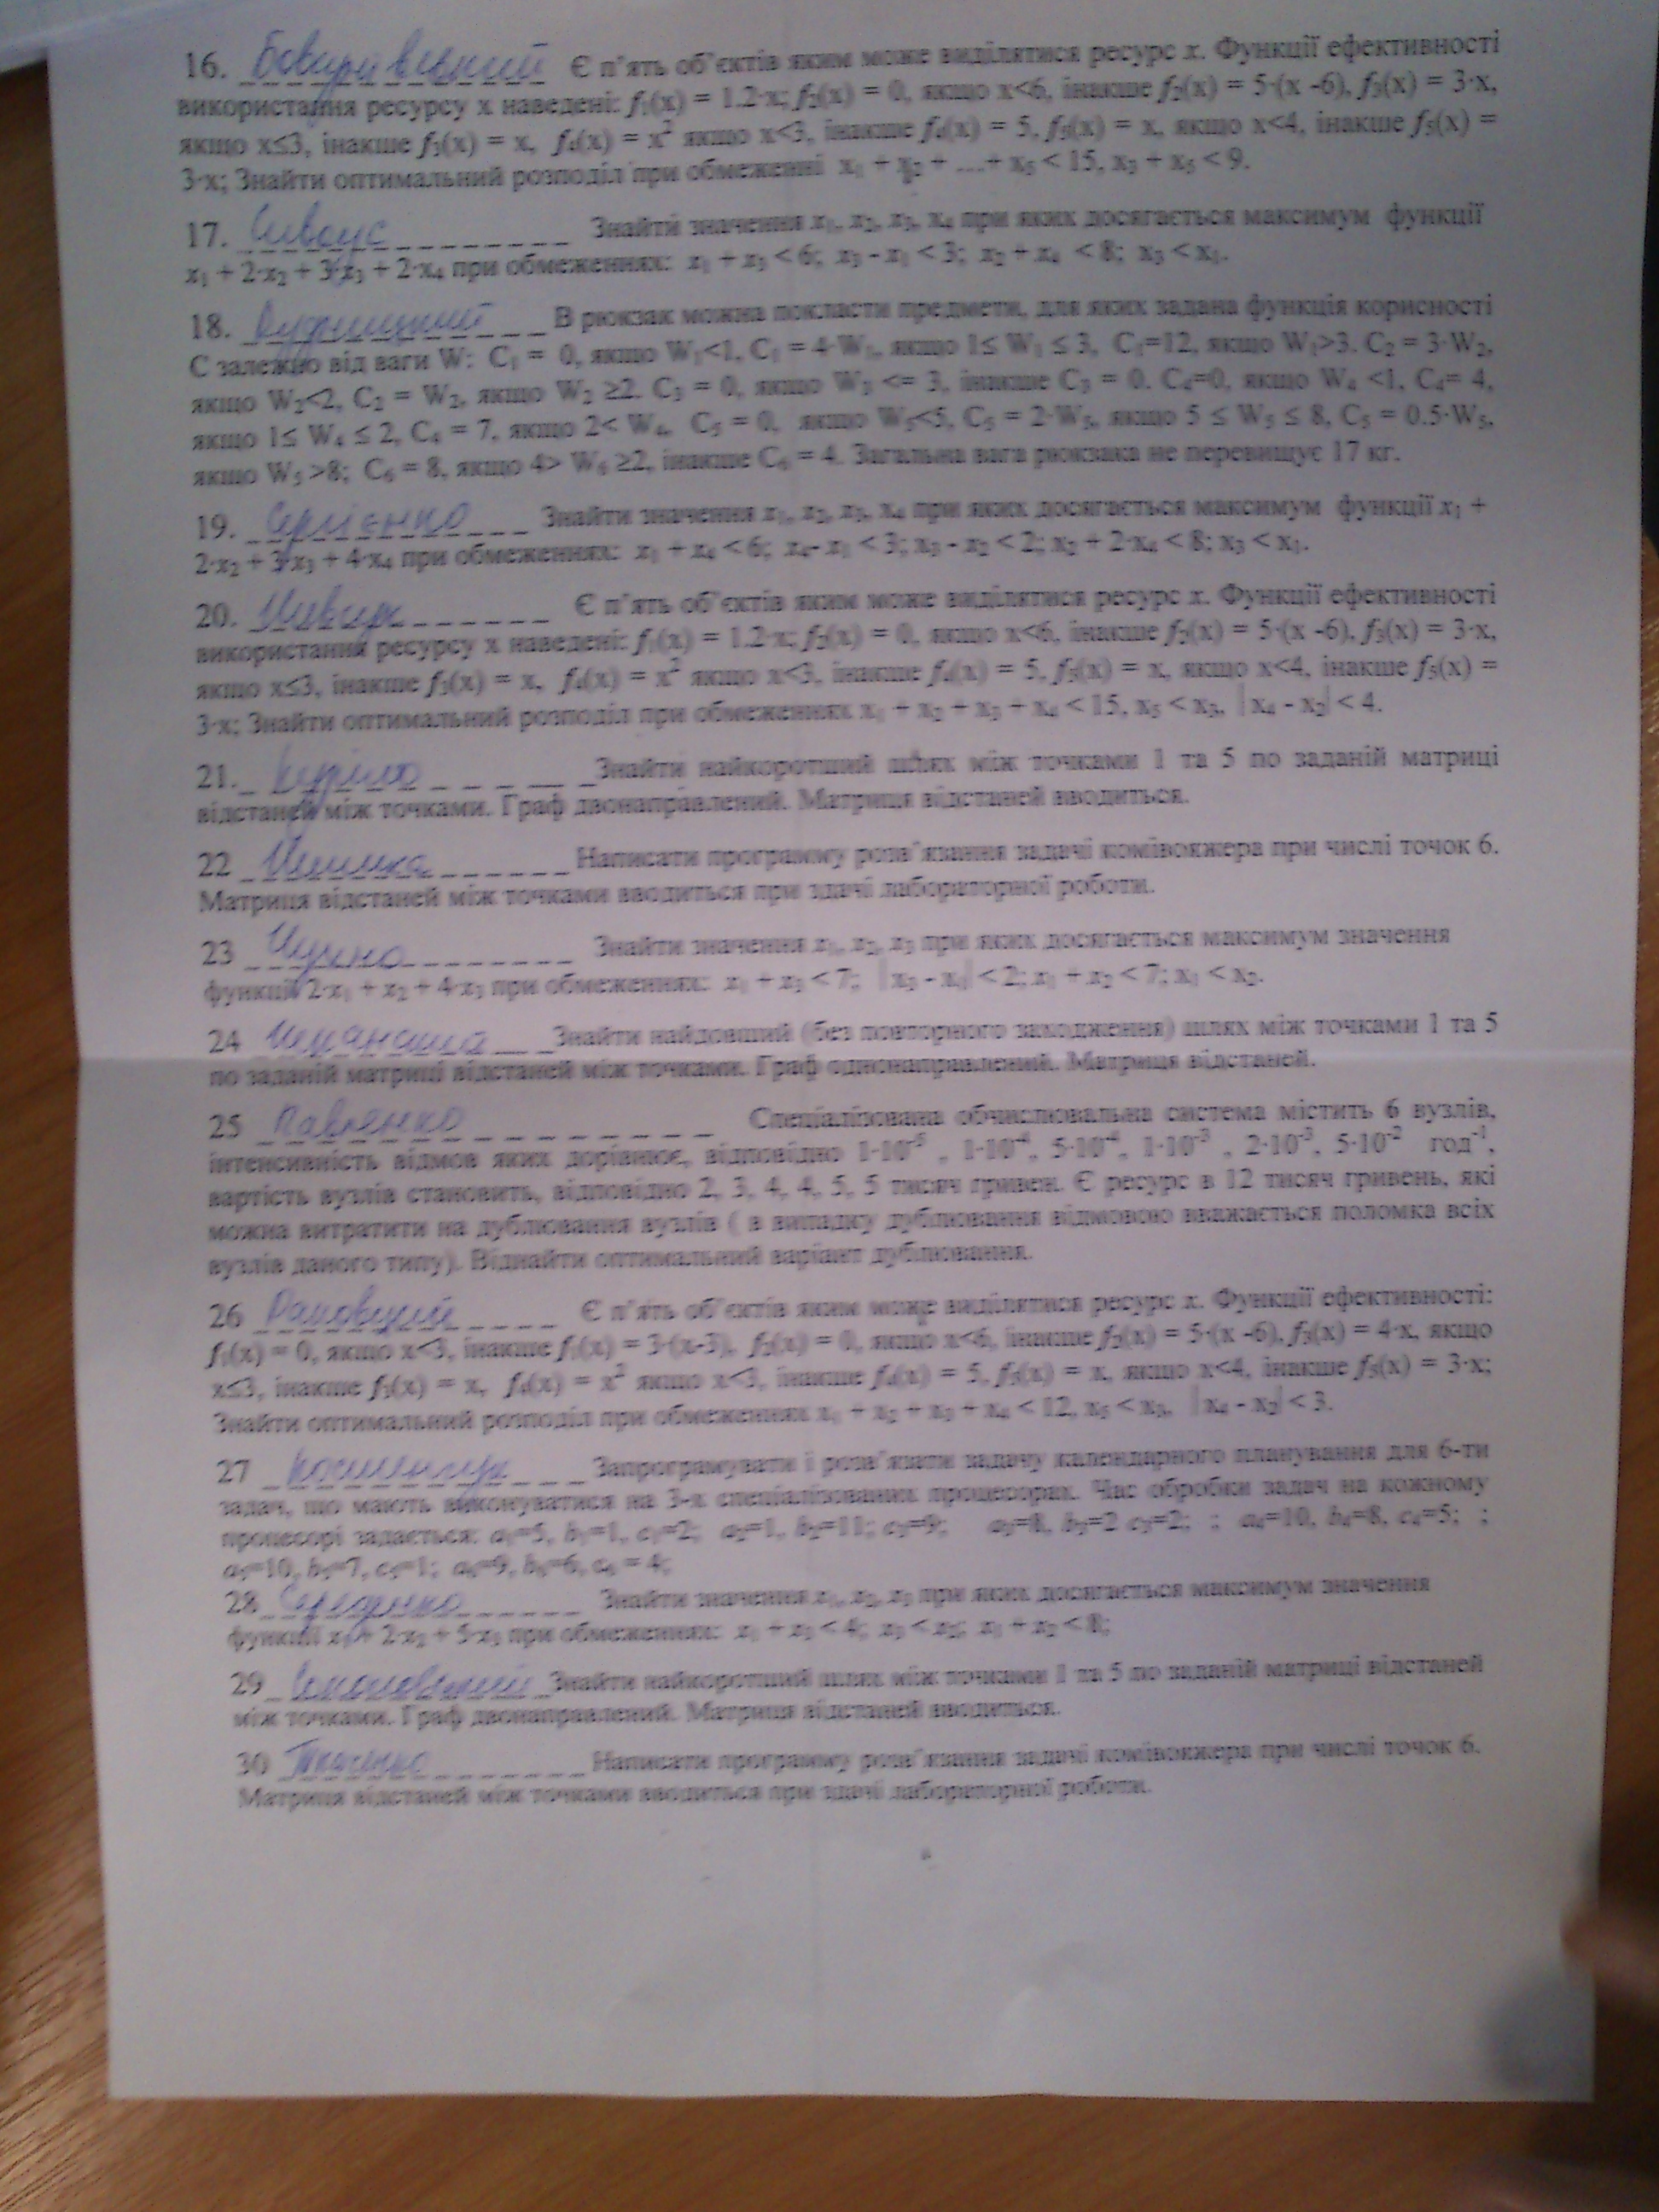 16. Є п'ять об'єктів яким може виділятися ресурс x. Функції ефективності
використання ресурсу x наведені: f₁(x) = 1.2·x; f₂(x) = 0, якщо x<6, інакше f₂(x) = 5·(x -6), f₃(x) = 3·x,
якщо x≤3, інакше f₃(x) = x, f₄(x) = x² якщо x<3, інакше f₄(x) = 5, f₅(x) = x, якщо x<4, інакше f₅(x) =
3·x; Знайти оптимальний розподіл при обмеженні x₁ + x₂ + ...+ x₅ < 15, x₃ + x₅ < 9.
17. Сивоус Знайти значення x₁, x₂, x₃, x₄ при яких досягається максимум функції
x₁ + 2·x₂ + 3·x₃ + 2·x₄ при обмеженнях: x₁ + x₃ < 6; x₃ - x₁ < 3; x₂ + x₄ < 8; x₃ < x₁.
18. В рюкзак можна покласти предмети, для яких задана функція корисності
C залежно від ваги W: C₁ = 0, якщо W₁<1, C₁ = 4·W₁, якщо 1≤ W₁ ≤ 3, C₁=12, якщо W₁>3. C₂ = 3·W₂,
якщо W₂<2, C₂ = W₂, якщо W₂ ≥2. C₃ = 0, якщо W₃ <= 3, інакше C₃ = 0. C₄=0, якщо W₄ <1, C₄= 4,
якщо 1≤ W₄ ≤ 2, C₄ = 7, якщо 2< W₄, C₅ = 0, якщо W₅<5, C₅ = 2·W₅, якщо 5 ≤ W₅ ≤ 8, C₅ = 0.5·W₅,
якщо W₅ >8; C₆ = 8, якщо 4> W₆ ≥2, інакше C₆ = 4. Загальна вага рюкзака не перевищує 17 кг.
19. Сергієнко Знайти значення x₁, x₂, x₃, x₄ при яких досягається максимум функції x₁ +
2·x₂ + 3·x₃ + 4·x₄ при обмеженнях: x₁ + x₄ < 6; x₄- x₁ < 3; x₃ - x₂ < 2; x₂ + 2·x₄ < 8; x₃ < x₁.
20. Є п'ять об'єктів яким може виділятися ресурс x. Функції ефективності
використання ресурсу x наведені: f₁(x) = 1.2·x; f₂(x) = 0, якщо x<6, інакше f₂(x) = 5·(x -6), f₃(x) = 3·x,
якщо x≤3, інакше f₃(x) = x, f₄(x) = x² якщо x<3, інакше f₄(x) = 5, f₅(x) = x, якщо x<4, інакше f₅(x) =
3·x; Знайти оптимальний розподіл при обмеженнях x₁ + x₂ + x₃ + x₄ < 15, x₅ < x₃, |x₄ - x₂| < 4.
21. Знайти найкоротший шлях між точками 1 та 5 по заданій матриці
відстаней між точками. Граф двонаправлений. Матриця відстаней вводиться.
22 Написати программу розв'язання задачі комівояжера при числі точок 6.
Матриця відстаней між точками вводиться при здачі лабораторної роботи.
23 Знайти значення x₁, x₂, x₃ при яких досягається максимум значення
функції 2·x₁ + x₂ + 4·x₃ при обмеженнях: x₁ + x₃ < 7; |x₃ - x₁| < 2; x₁ + x₂ < 7; x₁ < x₂.
24 Знайти найдовший (без повторного заходження) шлях між точками 1 та 5
по заданій матриці відстаней між точками. Граф однонаправлений. Матриця відстаней.
25 Павленко Спеціалізована обчислювальна система містить 6 вузлів,
інтенсивність відмов яких дорівнює, відповідно 1·10⁻⁵ , 1·10⁻⁴, 5·10⁻⁴, 1·10⁻³ , 2·10⁻³, 5·10⁻² год⁻¹,
вартість вузлів становить, відповідно 2, 3, 4, 4, 5, 5 тисяч гривен. Є ресурс в 12 тисяч гривень, які
можна витратити на дублювання вузлів ( в випадку дублювання відмовою вважається поломка всіх
вузлів даного типу). Віднайти оптимальний варіант дублювання.
26 Є п'ять об'єктів яким може виділятися ресурс x. Функції ефективності:
f₁(x) = 0, якщо x<3, інакше f₁(x) = 3·(x-3), f₂(x) = 0, якщо x<6, інакше f₂(x) = 5·(x -6), f₃(x) = 4·x, якщо
x≤3, інакше f₃(x) = x, f₄(x) = x² якщо x<3, інакше f₄(x) = 5, f₅(x) = x, якщо x<4, інакше f₅(x) = 3·x;
Знайти оптимальний розподіл при обмеженнях x₁ + x₂ + x₃ + x₄ < 12, x₅ < x₃, |x₄ - x₂| < 3.
27 Запрограмувати і розв'язати задачу календарного планування для 6-ти
задач, що мають виконуватися на 3-х спеціалізованих процесорах. Час обробки задач на кожному
процесорі задається: a₁=5, b₁=1, c₁=2; a₂=1, b₂=11; c₂=9; a₃=8, b₃=2 c₃=2; ; a₄=10, b₄=8, c₄=5; ;
a₅=10, b₅=7, c₅=1; a₆=9, b₆=6, c₆ = 4;
28 Знайти значення x₁, x₂, x₃ при яких досягається максимум значення
функції x₁+ 2·x₂ + 5·x₃ при обмеженнях: x₁ + x₃ < 4; x₃ < x₂; x₁ + x₂ < 8;
29 Знайти найкоротший шлях між точками 1 та 5 по заданій матриці відстаней
між точками. Граф двонаправлений. Матриця відстаней вводиться.
30 Ткаченко Написати программу розв'язання задачі комівояжера при числі точок 6.
Матриця відстаней між точками вводиться при здачі лабораторної роботи.